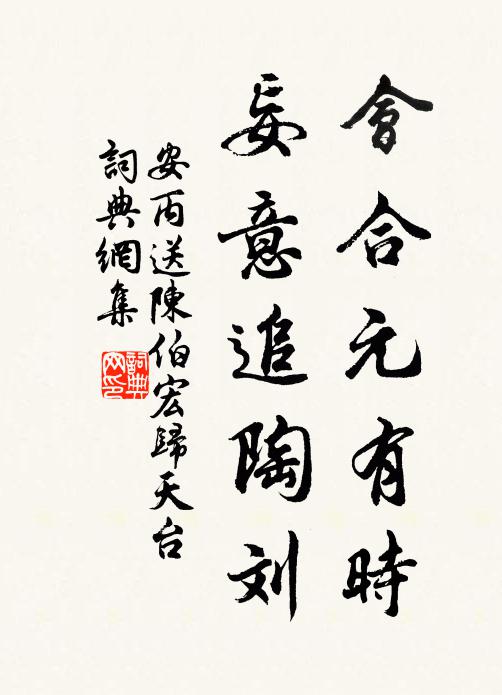 會合元有時
妄意追陶刘
安丙送陳伯宏歸天台
詞典網集
詞典
网印